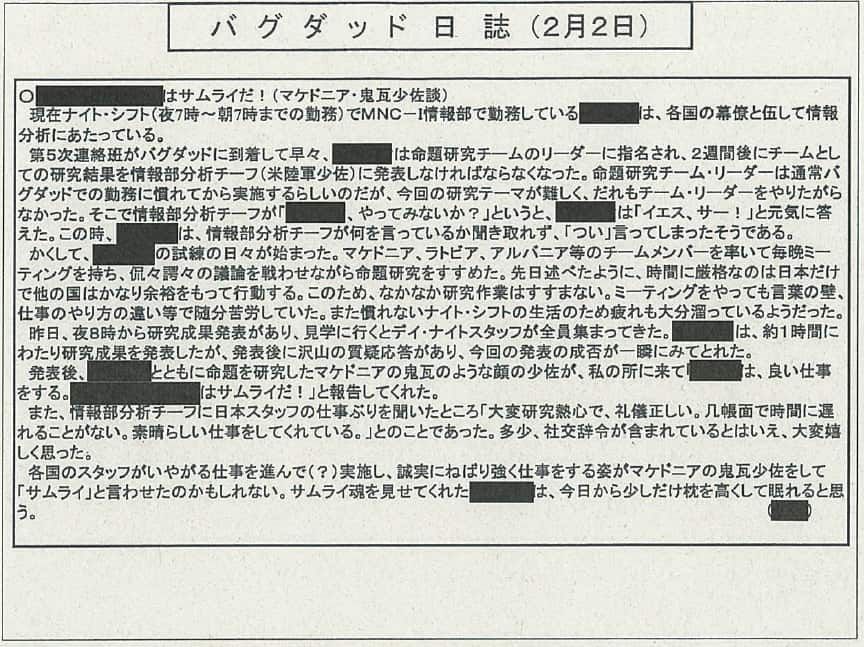 バグダッド日誌（２月２日）
○はサムライだ！（マケドニア・鬼瓦少佐談）
現在ナイト・シフト（夜7時～朝7時までの勤務）でＭＮＣ－Ⅰ情報部で勤務しているは、各国の幕僚と伍して情報
分析にあたっている。
第５次連絡班がバグダッドに到着して早々、は命題研究チームのリーダーに指名され、２週間後にチームとし
ての研究結果を情報部分析チーフ（米陸軍少佐）に発表しなければならなくなった。命題研究チーム・リーダーは通常バ
グダッドでの勤務に慣れてから実施するらしいのだが、今回の研究テーマが難しく、だれもチーム・リーダーをやりたがら
なかった。そこで情報部分析チーフが「、やってみないか？」というと、は「イエス、サー！」と元気に答
えた。この時、は、情報部分析チーフが何を言っているか聞き取れず、「つい」言ってしまったそうである。
かくして、の試練の日々が始まった。マケドニア、ラトビア、アルバニア等のチームメンバーを率いて毎晩ミー
ティングを持ち、侃々諤々の議論を戦わせながら命題研究をすすめた。先日述べたように、時間に厳格なのは日本だけ
で他の国はかなり余裕をもって行動する。このため、なかなか研究作業はすすまない。ミーティングをやっても言葉の壁、
仕事のやり方の違い等で随分苦労していた。また慣れないナイト・シフトの生活のため疲れも大分溜っているようだった。
昨日、夜８時から研究成果発表があり、見学に行くとデイ・ナイトスタッフが全員集まってきた。は、約１時間に
わたり研究成果を発表したが、発表後に沢山の質疑応答があり、今回の発表の成否が一瞬にみてとれた。
発表後、とともに命題を研究したマケドニアの鬼瓦のような顔の少佐が、私の所に来て「は、良い仕事
をする。はサムライだ！」と報告してくれた。
また、情報部分析チーフに日本スタッフの仕事ぶりを聞いたところ「大変研究熱心で、礼儀正しい。几帳面で時間に遅
れることがない。素晴らしい仕事をしてくれている。」とのことであった。多少、社交辞令が含まれているとはいえ、大変嬉
しく思った。
各国のスタッフがいやがる仕事を進んで（？）実施し、誠実にねばり強く仕事をする姿がマケドニアの鬼瓦少佐をして
「サムライ」と言わせたのかもしれない。サムライ魂を見せてくれたは、今日から少しだけ枕を高くして眠れると思
う。（）